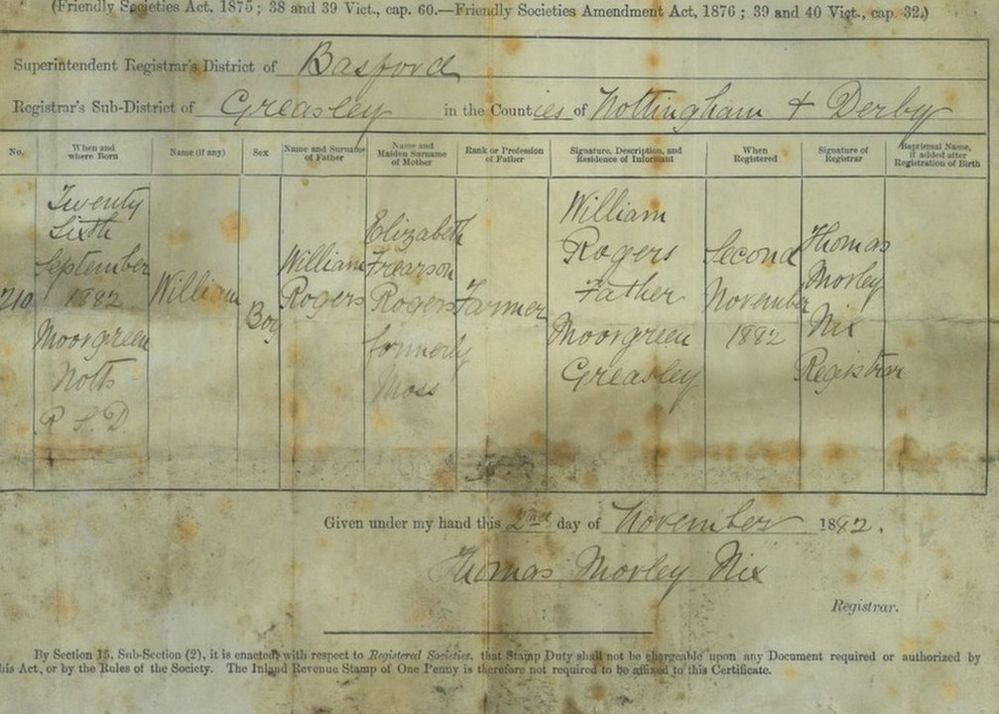 (Friendly Societies Act, 1875; 38 and 39 Vict., cap. 60.—Friendly Societies Amendment Act, 1876; 39 and 40 Vict., cap. 32.)
Superintendent Registrar's District of Basford
Registrar's Sub-District of Greasley in the Counties of Nottingham & Derby
No.
When and where Born
Name (if any)
Sex
Name and Surname of Father
Name and Maiden Surname of Mother
Rank or Profession of Father
Signature, Description, and Residence of Informant
When Registered
Signature of Registrar
Baptismal Name, if added after Registration of Birth
210
Twenty
Sixth
September
1882
Moorgreen
Notts
R S. D.
William
Boy
William
Rogers
Elizabeth
Frearson
Rogers
formerly
Moss
Farmer
William
Rogers
Father
Moorgreen
Greasley
Second
November
1882
Thomas
Morley
Nix
Registrar
Given under my hand this 2nd day of November 1882.
Thomas Morley Nix
Registrar.
By Section 15, Sub-Section (2), it is enacted with respect to Registered Societies, that Stamp Duty shall not be chargeable upon any Document required or authorized by
his Act, or by the Rules of the Society. The Inland Revenue Stamp of One Penny is therefore not required to be affixed to this Certificate.